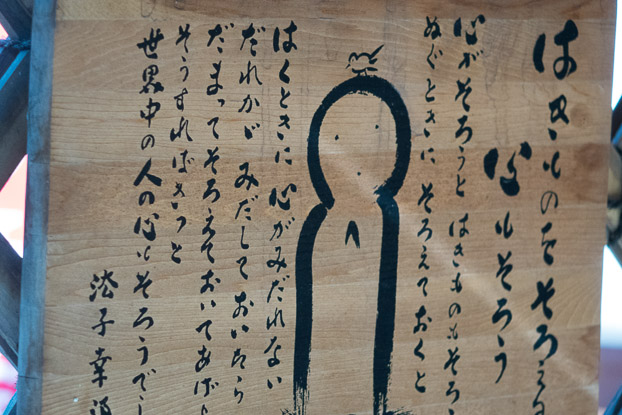 はきものをそろえ
心もそろう
心がそろうと はきものもそろ
ぬぐときに そろえておくと
はくときに 心がみだれない
だれかが みだして おいたら
だまってそろえておいてあげ
そうすればきっと
世界中の人の心もそろうでし